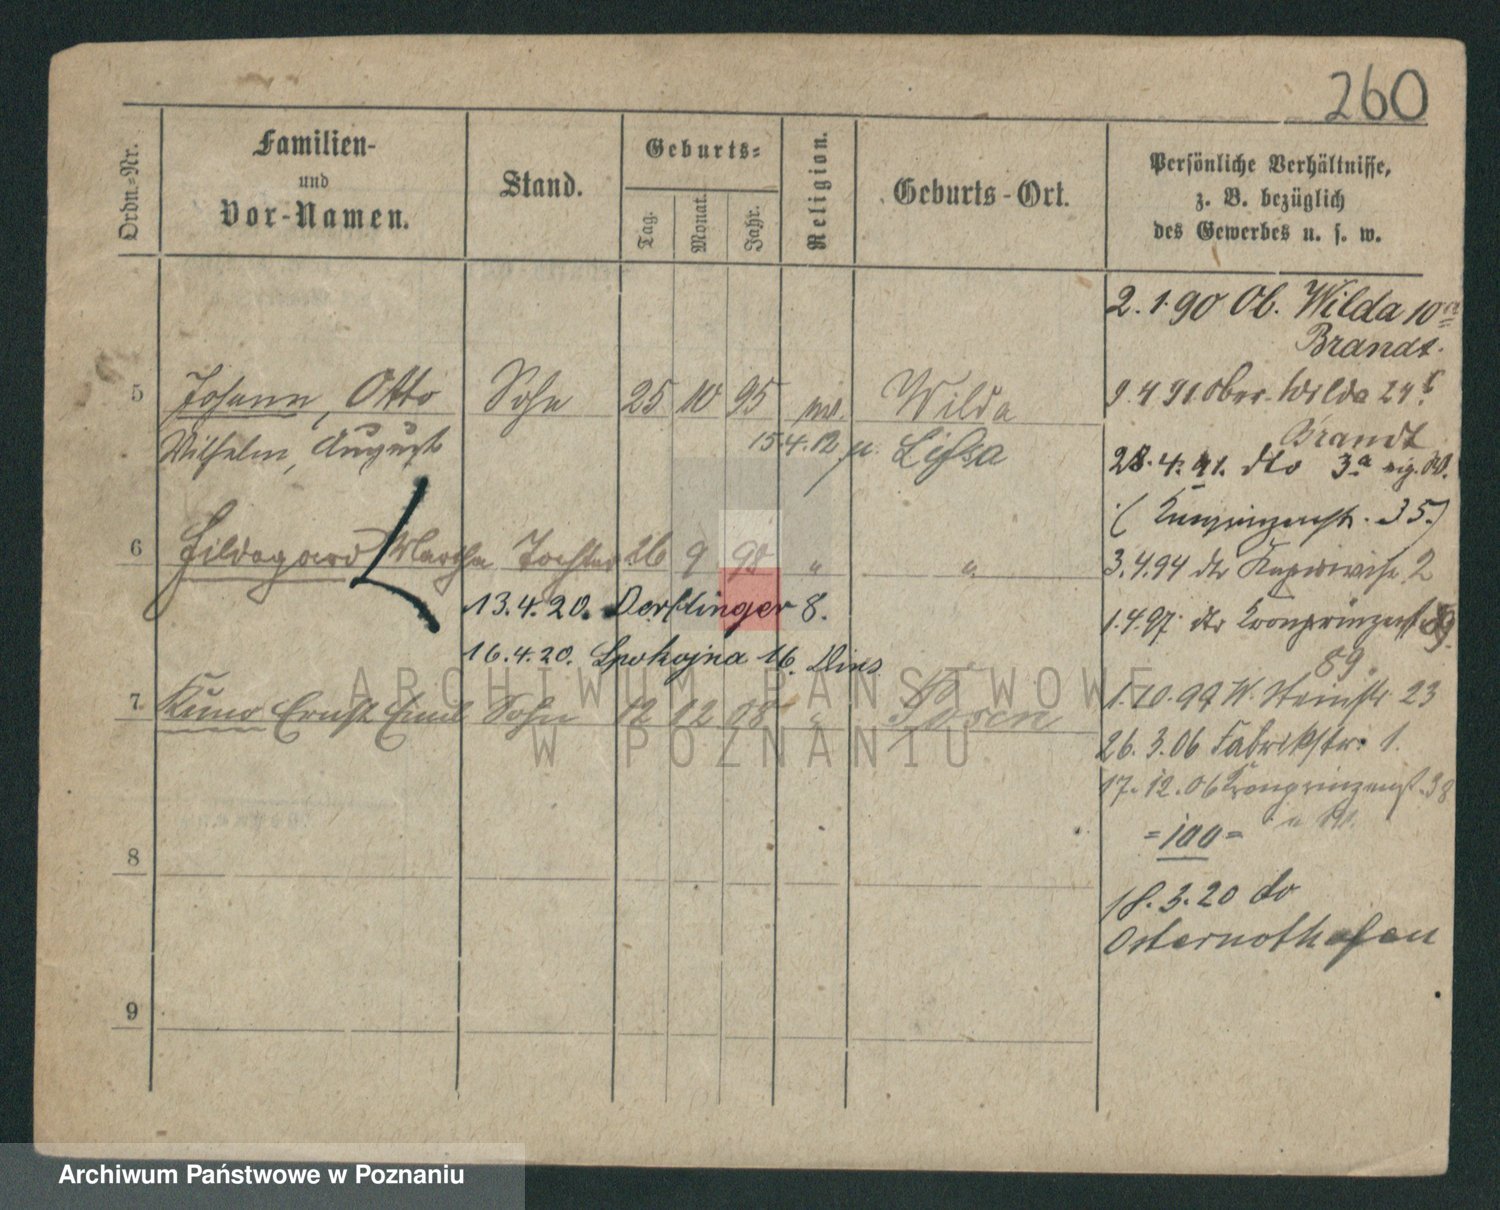 260
Ordn.-Nr.
Familien-
und
Vor-Namen.
Stand.
Geburts-
Tag.
Monat.
Jahr.
Religion.
Geburts-Ort.
Persönliche Verhältnisse,
z. B. bezüglich
des Gewerbes u. s. w.
2.1.90 Ob. Wilda 10
Brandt.
5 Johann, Otto Sohn 25 10 95 Wilda
9.4.91 Ober-Wilda 24
Brandt
Wilhelm, August 15.4.12 n. Lissa
28.4.91. dto 3a
35.)
6 Hildegard Martha Tochter 26 9 98 " "
3.4.94 dto 2
13.4.20. Derfflinger 8.
1.4.97 dto Kronprinzenst.
89.
16.4.20. Spokojna 16.
7 Kuno Ernst Emil Sohn 12 12 08 " Posen
1.10.99 W. 23
26.3.06 Fabrikstr. 1.
17.12.06 Kronprinzenst. 38
=100=
8
18.3.20 do
Osternothafen
9
ARCHIWUM PAŃSTWOWE
W POZNANIU
Archiwum Państwowe w Poznaniu